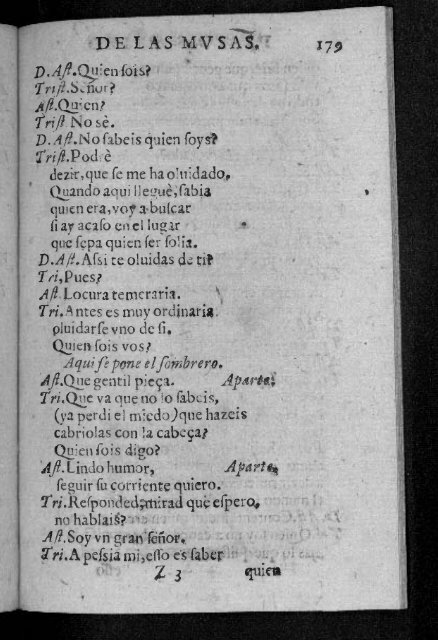 DE LAS MVSAS. 179
D. Ast. Quien sois?
Trist. Señor?
Ast. Quien?
Trist No sè.
D. Ast. No sabeis quien soys?
Trist. Podrè
dezir, que se me ha oluidado,
Quando aqui lleguè, sabia
quien era, voy a buscar
si ay acaso en el lugar
que sepa quien ser solia.
D. Ast. Assi te oluidas de ti?
Tri, Pues?
Ast. Locura temeraria.
Tri. Antes es muy ordinaria
oluidarse vno de si.
Quien sois vos?
Aqui se pone el sombrero.
Ast. Que gentil pieça. Aparte.
Tri. Que va que no lo sabeis,
(ya perdi el miedo) que hazeis
cabriolas con la cabeça?
Quien sois digo?
Ast. Lindo humor, Aparte,
seguir su corriente quiero.
Tri. Responded, mirad que espero,
no hablais?
Ast. Soy vn gran señor.
Tri. A pessia mi, esso es saber
Z 3 quien